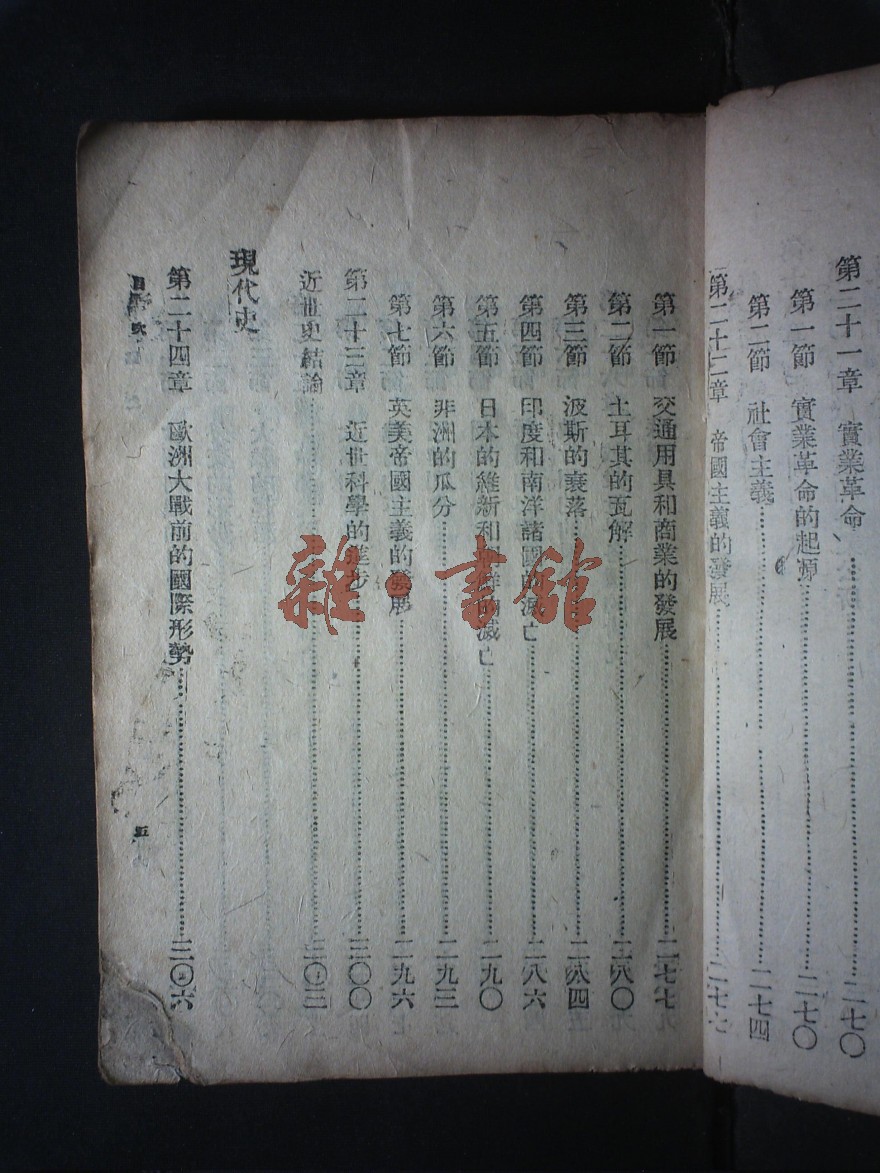 第二十一章　實業革命……二七〇
第一節　實業革命的起源……二七〇
第二節　社會主義……二七四
第二十二章　帝國主義的發展……二七七
第一節　交通用具和商業的發展……二七七
第二節　土耳其的瓦解……二八〇
第三節　波斯的衰落……二八四
第四節　印度和南洋諸國的滅亡……二八六
第五節　日本的維新和朝鮮的滅亡……二九〇
第六節　非洲的瓜分……二九三
第七節　英美帝國主義的發展……二九六
第二十三章　近世科學的進步……三〇〇
近世史結論……三〇三
現代史
第二十四章　歐洲大戰前的國際形勢……三〇六
目次
五
雜·書館